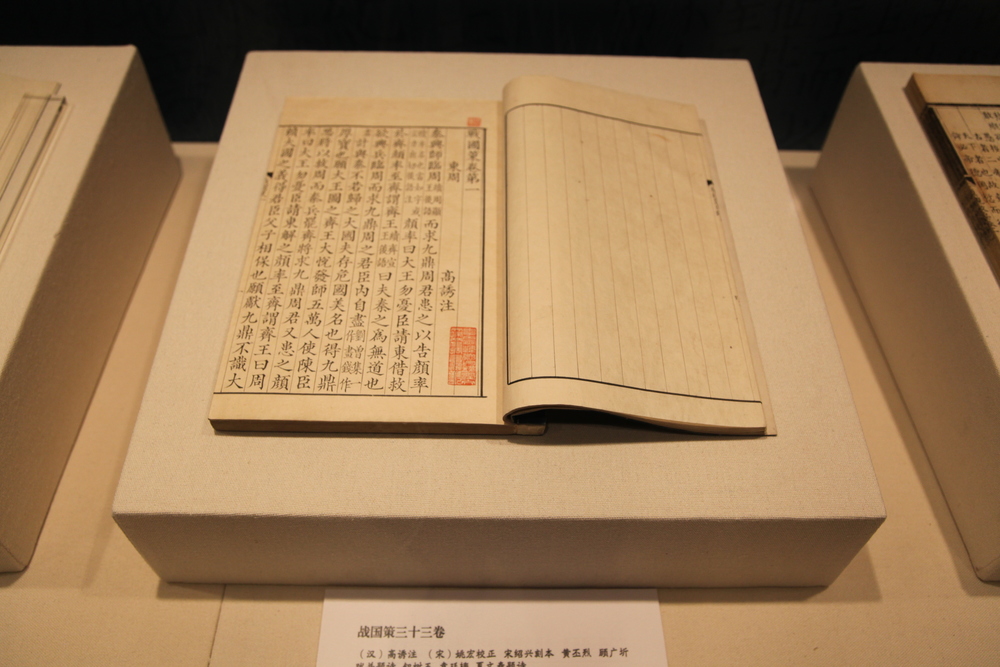 戰國策卷第一
東周 高誘注
秦興師臨周而求九鼎周君患之以告顏率
顏率曰大王勿憂臣請東借救
於齊顏率至齊謂齊王曰夫秦之爲無道也
欲興兵臨周而求九鼎周之君臣內自盡劉曾集一作畫錢作
計與秦不若歸之大國夫存危國美名也得九鼎
厚寶也願大王圖之齊王大悅發師五萬人使陳臣
思將以救周而秦兵罷齊將求九鼎周君又患之顏
率曰大王勿憂臣請東解之顏率至齊謂齊王曰周
賴大國之義得君臣父子相保也願獻九鼎不識大
战国策三十三卷
（汉）高诱注 （宋）姚宏校正 宋绍兴刻本 黄丕烈 顾广圻